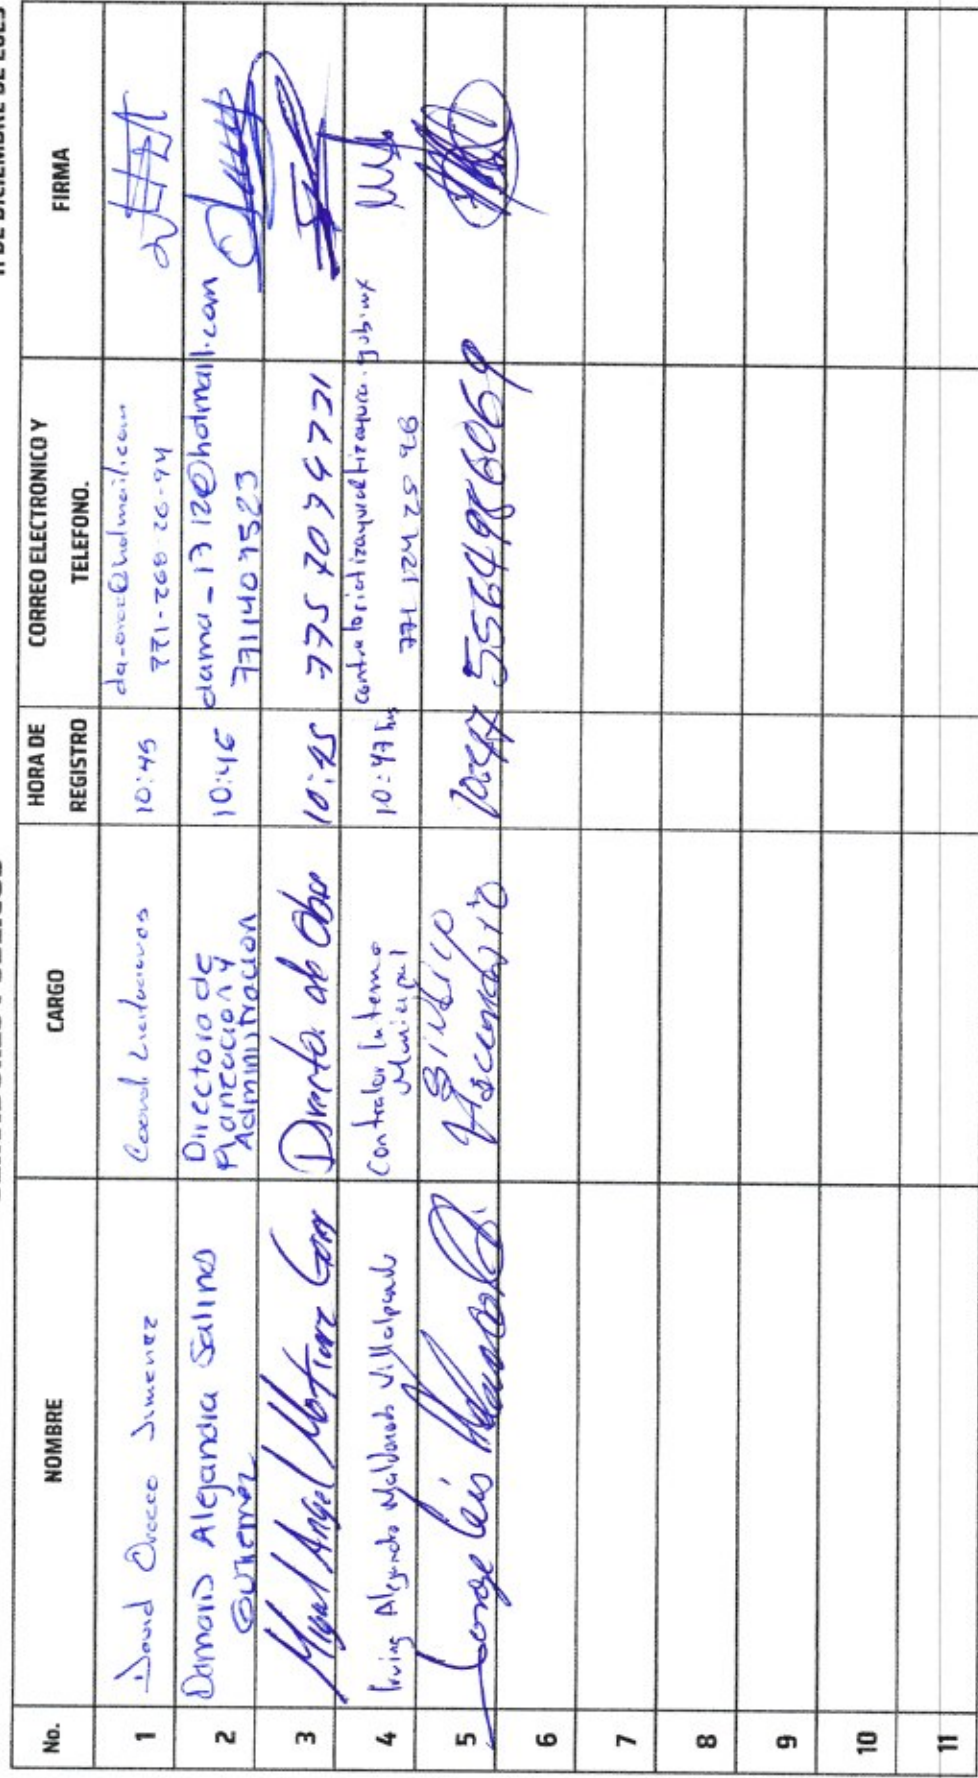 11 DE DICIEMBRE DE 2025
No.
NOMBRE
CARGO
HORA DE
REGISTRO
CORREO ELECTRONICO Y
TELEFONO.
FIRMA
1
David Orozco Jimenez
Coord Licitaciones
10:45
771-268-26-94
2
Damaris Alejandra Salinas
Gutierrez
Directora de
Planeación y
Administración
10:46
dama_1712@hotmail.com
7711407523
3
Miguel Angel Martinez
Director de Obras
10:45
4
Irving Alejandro Maldonado Villalpando
Contralor Interno
Municipal
10:47 hrs
771 124 25 98
5
Jorge Luis
Sindico
Hacendario
10:47
5564986069
6
7
8
9
10
11